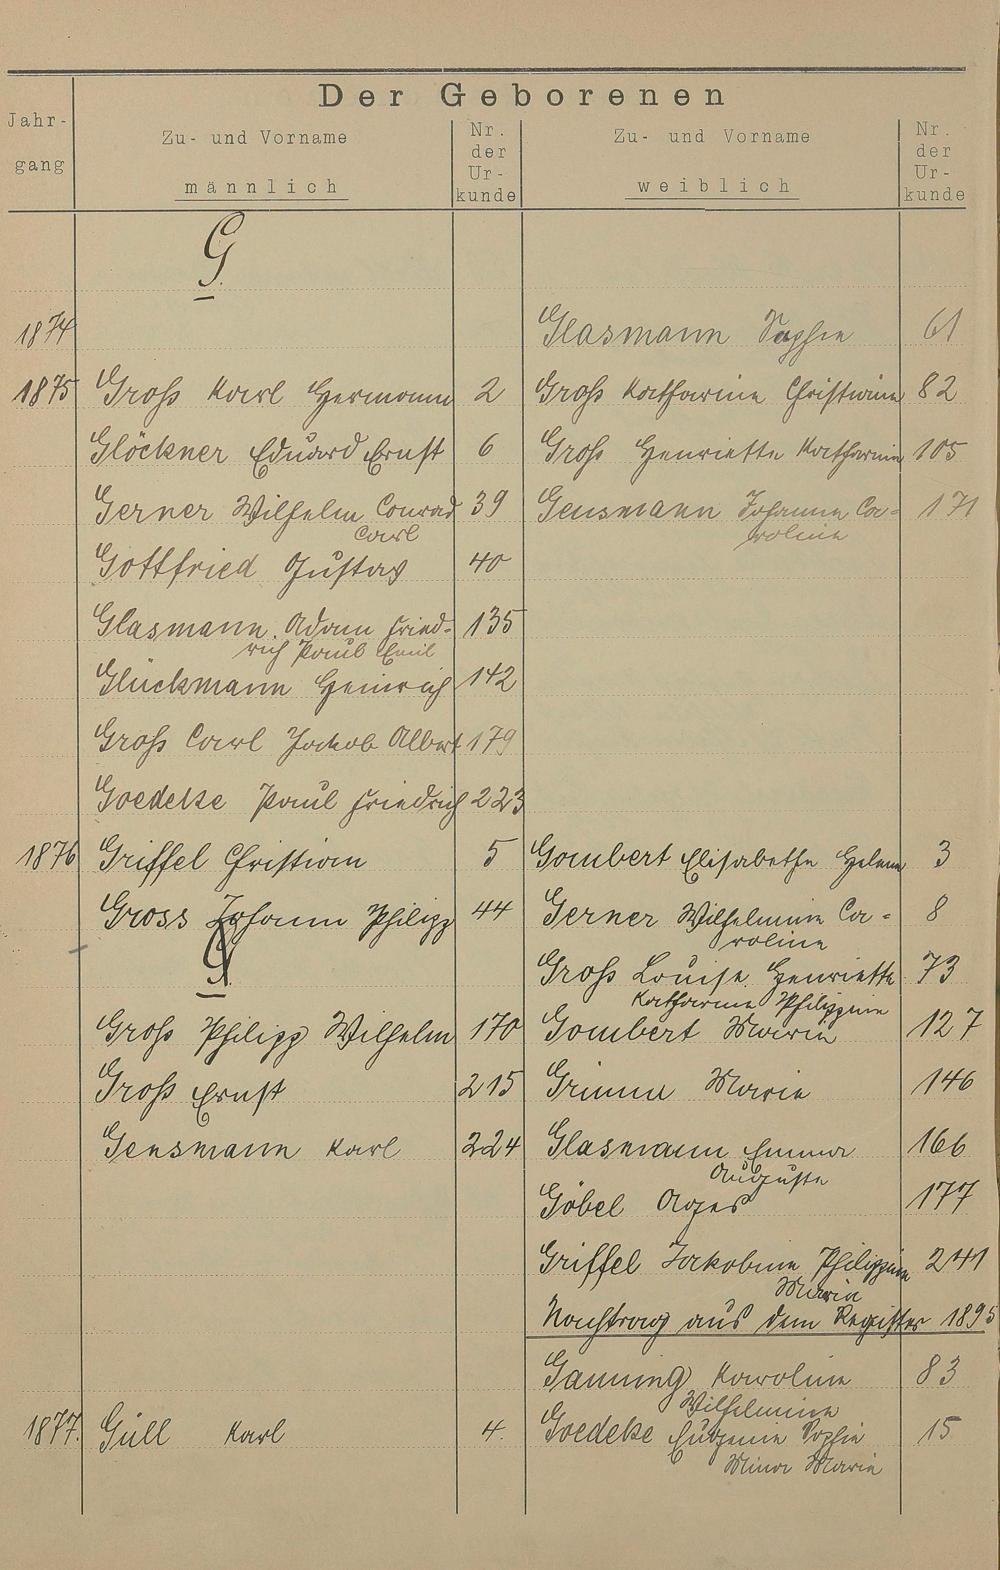 Der Geborenen
Jahr-
gang
Zu- und Vorname
männlich
Nr.
der
Ur-
kunde
Zu- und Vorname
weiblich
Nr.
der
Ur-
kunde
G
1874 Glasmann Sophie 61
1875 Groß Karl Hermann 2 Groß Katharine Christiane 82
Glöckner Eduard Ernst 6 Groß Henriette Katharine 105
Gerner Wilhelm Conrad 39 Gensmann Johanna Ca- 171
Carl roline
Gottfried Gustav 40
Glasmann Adam Fried- 135
rich Paul Emil
Glückmann Heinrich 142
Groß Carl Jakob Albert 179
Goedeke Paul Friedrich 223
1876 Griffel Christian 5 Gombert Elisabethe Helene 3
Gross Johann Philipp 44 Gerner Wilhelmine Ca- 8
roline
G
Groß Louise Henriette 73
Katharine Philippine
Groß Philipp Wilhelm 170 Gombert Maria 127
Groß Ernst 215 Grimm Marie 146
Gensmann Karl 224 Glasmann Emma 166
Auguste
Göbel Agnes 177
Griffel Jakobine Philippine 241
Maria
Nachtrag aus dem Register 1895
Ganning Karoline 83
Wilhelmine
1877. Güll Karl 4. Goedeke Eugenie Sophie 15
Minna Marie